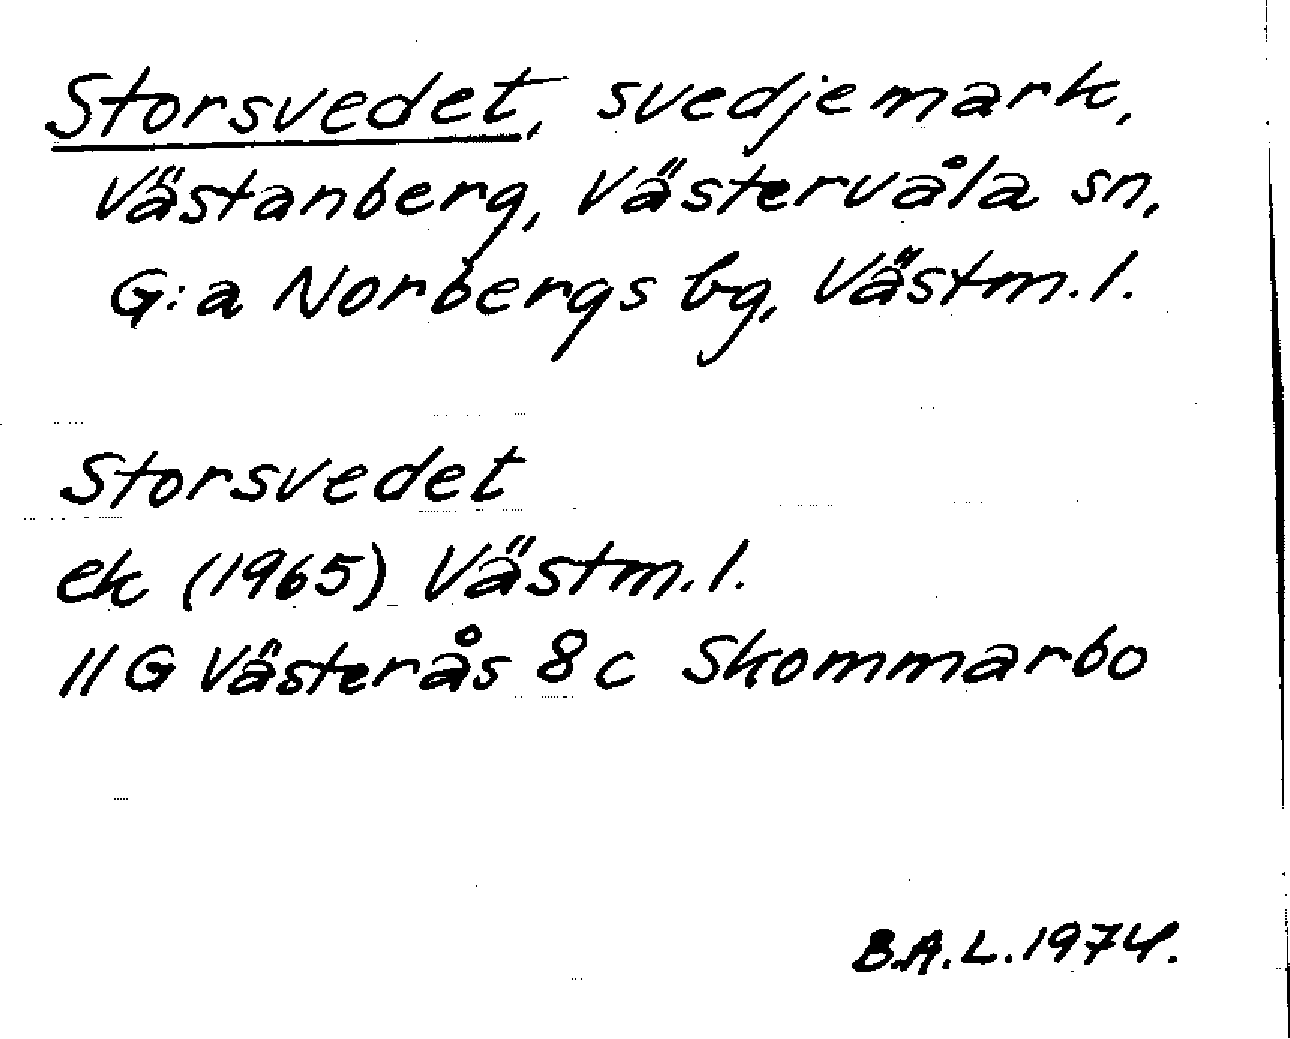 Storsvedet, svedjemark,
Västanberg, Västervåla sn,
G:a Norbergs bg, Västm.l.
Storsvedet
ek (1965) Västm.l.
11G Västerås 8c Skommarbo
B.A.L.1974.